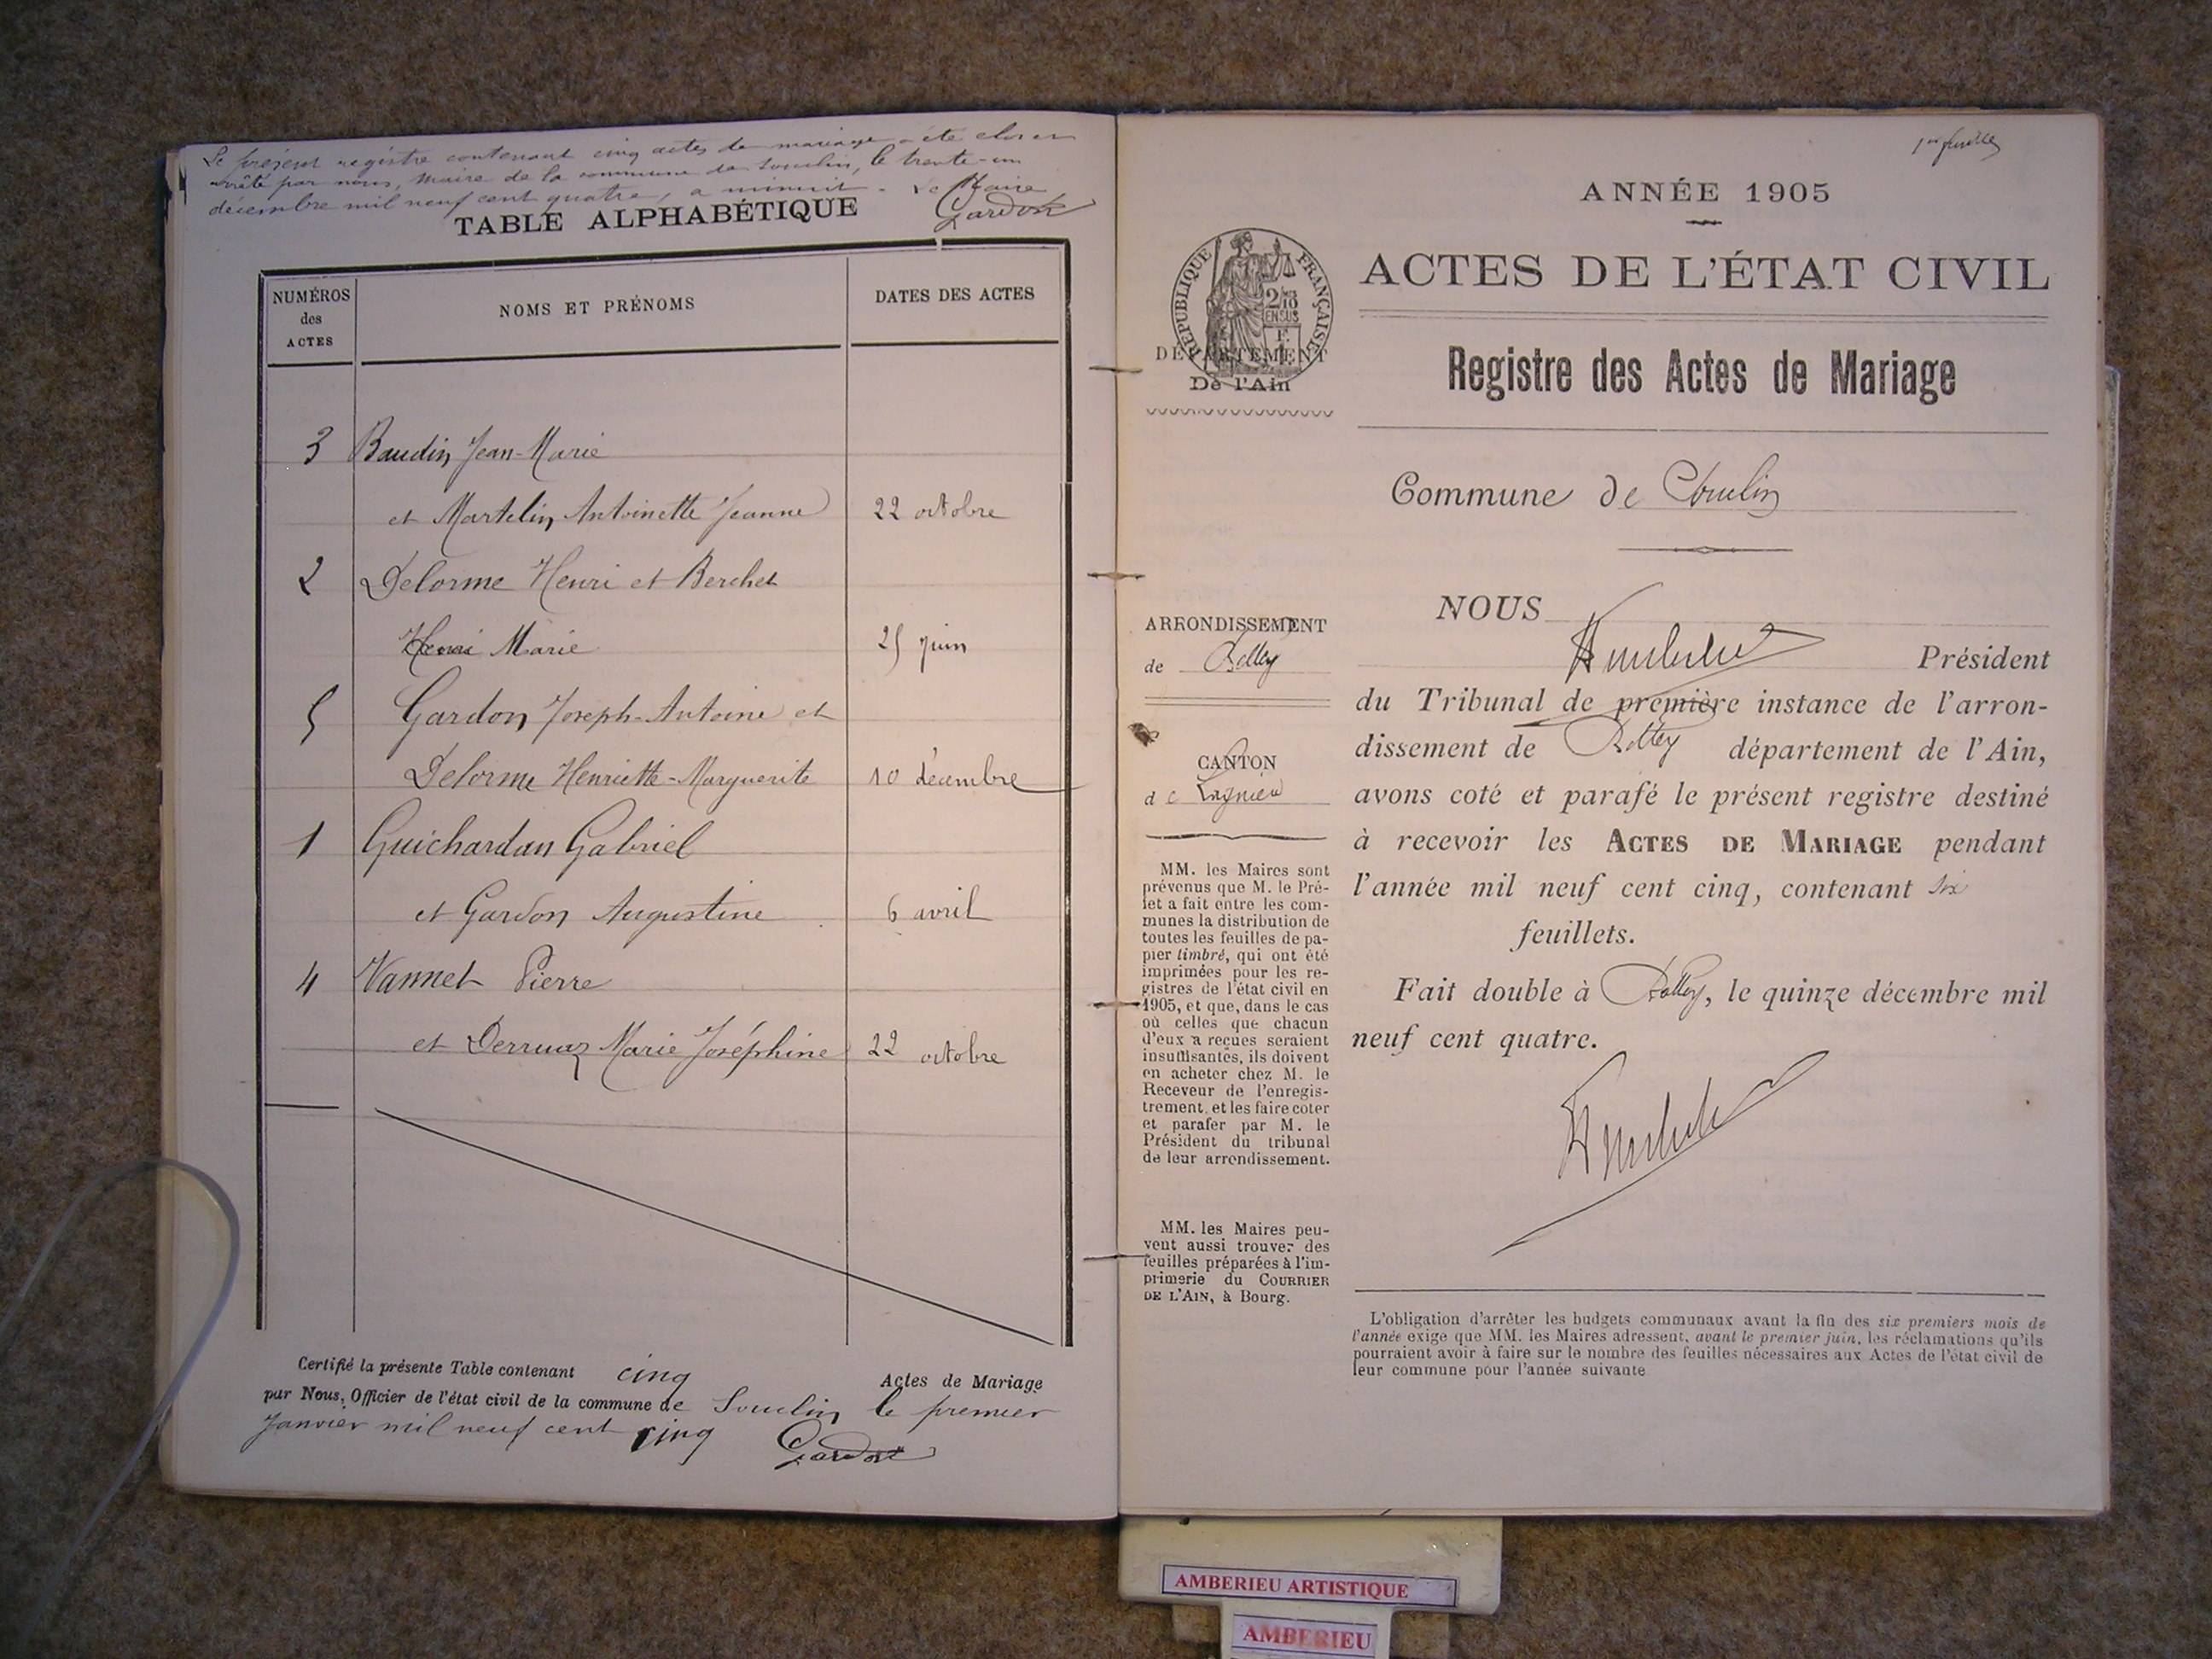 Le présent registre contenant cinq actes de mariage a été clos et
arrêté par nous, Maire de la commune de Souclin, le trente-un
décembre mil neuf cent quatre, à minuit. Le Maire
Gardon
TABLE ALPHABÉTIQUE
NUMÉROS des ACTES
NOMS ET PRÉNOMS
DATES DES ACTES
3 Baudin Jean-Marie
et Martelin Antoinette Jeanne 22 octobre
2 Delorme Henri et Berchet
Marie 25 juin
5 Gardon Joseph-Antoine et
Delorme Henriette-Marguerite 10 décembre
1 Guichardan Gabriel
et Gardon Augustine 6 avril
4 Vannet Pierre
et Derruaz Marie Joséphine 22 octobre
Certifié la présente Table contenant cinq Actes de Mariage
par Nous, Officier de l'état civil de la commune de Souclin le premier
Janvier mil neuf cent cinq Gardon
ANNÉE 1905
ACTES DE L'ÉTAT CIVIL
RÉPUBLIQUE FRANÇAISE
DÉPARTEMENT
De l'Ain
Registre des Actes de Mariage
Commune de Souclin
ARRONDISSEMENT
de Belley
CANTON
de Lagnieu
MM. les Maires sont
prévenus que M. le Pré-
fet a fait entre les com-
munes la distribution de
toutes les feuilles de pa-
pier timbré, qui ont été
imprimées pour les re-
gistres de l'état civil en
1905, et que, dans le cas
où celles que chacun
d'eux a reçues seraient
insuffisantes, ils doivent
en acheter chez M. le
Receveur de l'enregis-
trement, et les faire coter
et parafer par M. le
Président du tribunal
de leur arrondissement.
MM. les Maires peu-
vent aussi trouver des
feuilles préparées à l'im-
primerie du COURRIER
DE L'AIN, à Bourg.
NOUS
Président
du Tribunal de première instance de l'arron-
dissement de Belley département de l'Ain,
avons coté et parafé le présent registre destiné
à recevoir les ACTES DE MARIAGE pendant
l'année mil neuf cent cinq, contenant six
feuillets.
Fait double à Belley, le quinze décembre mil
neuf cent quatre.
L'obligation d'arrêter les budgets communaux avant la fin des six premiers mois de
l'année exige que MM. les Maires adressent, avant le premier juin, les réclamations qu'ils
pourraient avoir à faire sur le nombre des feuilles nécessaires aux Actes de l'état civil de
leur commune pour l'année suivante
AMBERIEU ARTISTIQUE
AMBERIEU